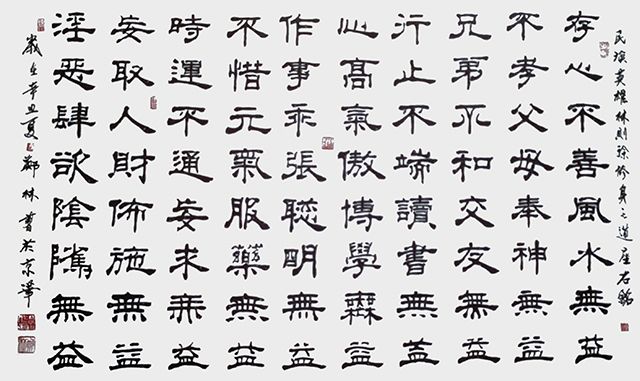 民族英雄林則徐修身之道座右銘
存心不善風水無益
不孝父母奉神無益
兄弟不和交友無益
行止不端讀書無益
心髙氣傲博學無益
作事乖張聰明無益
不惜元氣服藥無益
時運不通妄求無益
妄取人財佈施無益
淫惡肆欲陰騭無益
歲在辛丑夏日鄒林書於京華